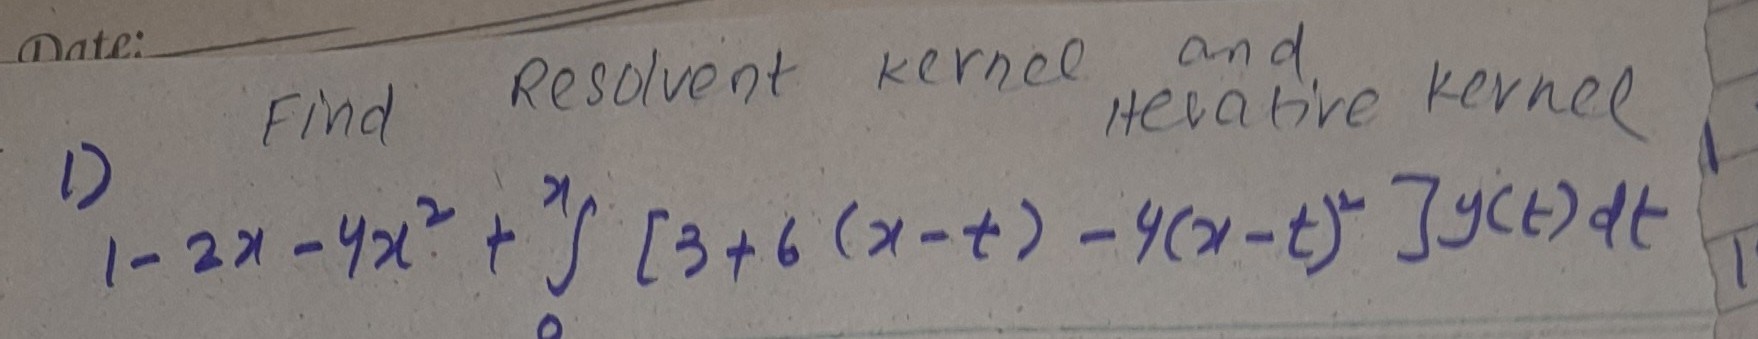 Date:
Find Resolvent kernel and
Iterative kernel
1)
1-2x-4x² + ∫₀ˣ [3+6(x-t) -4(x-t)²] y(t) dt